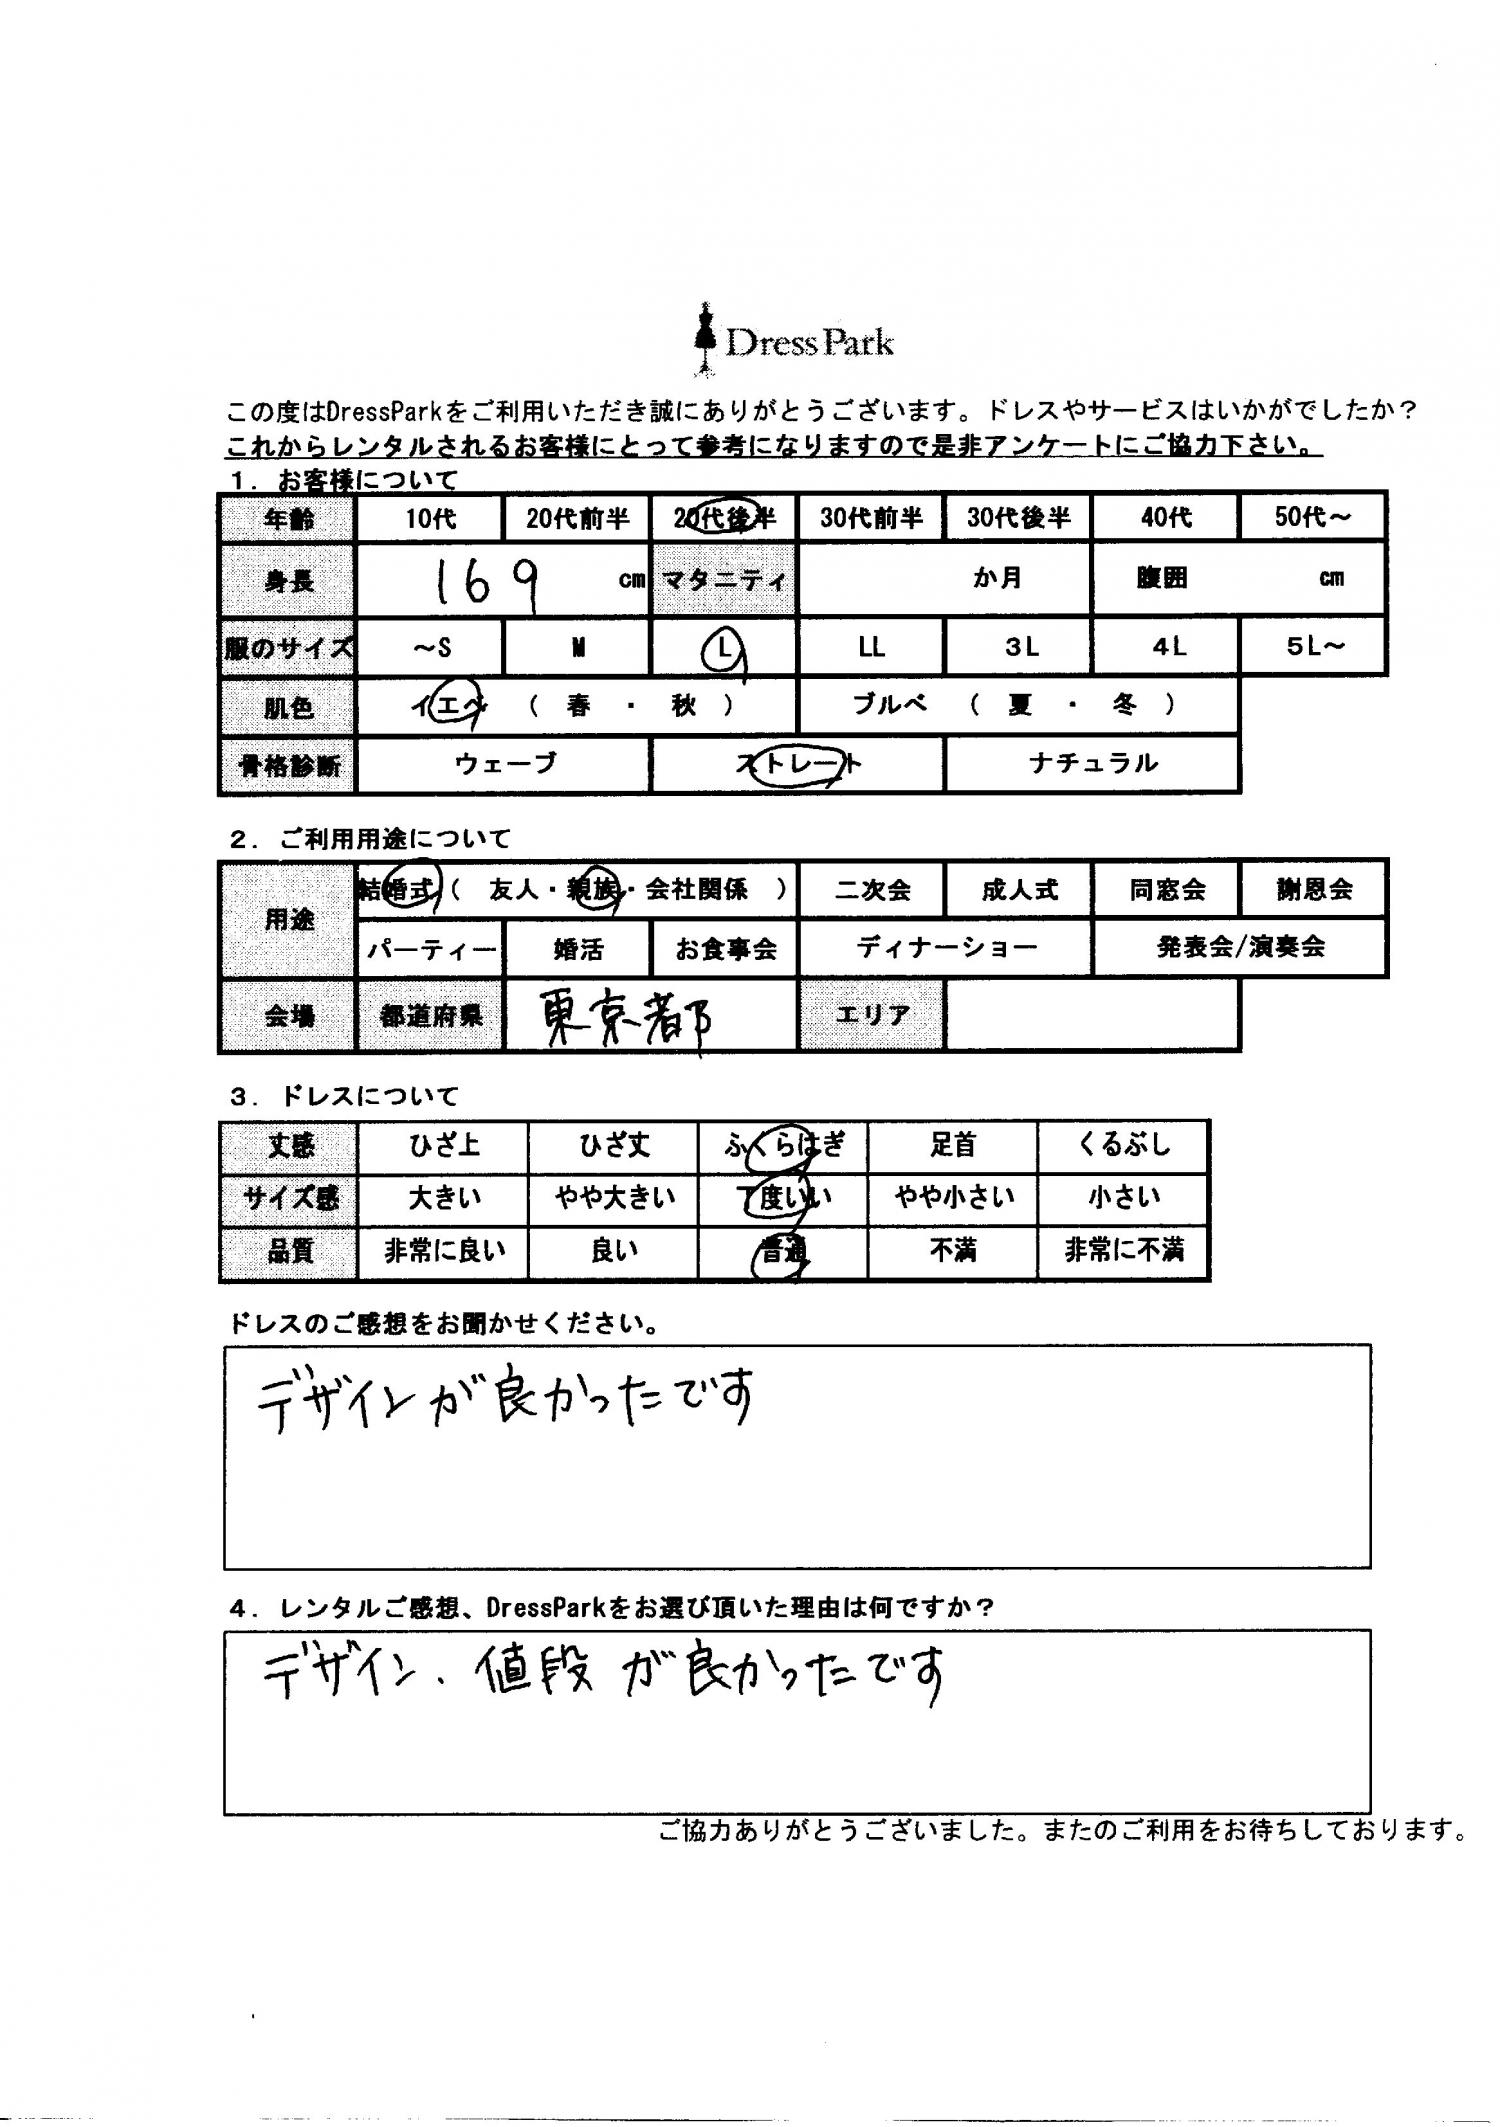 DressPark
この度はDressParkをご利用いただき誠にありがとうございます。ドレスやサービスはいかがでしたか？
これからレンタルされるお客様にとって参考になりますので是非アンケートにご協力下さい。
1. お客様について
年齢 10代 20代前半 20代後半 30代前半 30代後半 40代 50代～
身長 169 cm マタニティ か月 腹囲 cm
服のサイズ ～S M L LL 3L 4L 5L～
肌色 イエベ （ 春 ・ 秋 ） ブルベ （ 夏 ・ 冬 ）
骨格診断 ウェーブ ストレート ナチュラル
2. ご利用用途について
用途 結婚式（ 友人・親族・会社関係 ） 二次会 成人式 同窓会 謝恩会
パーティー 婚活 お食事会 ディナーショー 発表会/演奏会
会場 都道府県 東京都 エリア
3. ドレスについて
丈感 ひざ上 ひざ丈 ふくらはぎ 足首 くるぶし
サイズ感 大きい やや大きい 丁度いい やや小さい 小さい
品質 非常に良い 良い 普通 不満 非常に不満
ドレスのご感想をお聞かせください。
デザインが良かったです
4. レンタルご感想、DressParkをお選び頂いた理由は何ですか？
デザイン、値段が良かったです
ご協力ありがとうございました。またのご利用をお待ちしております。